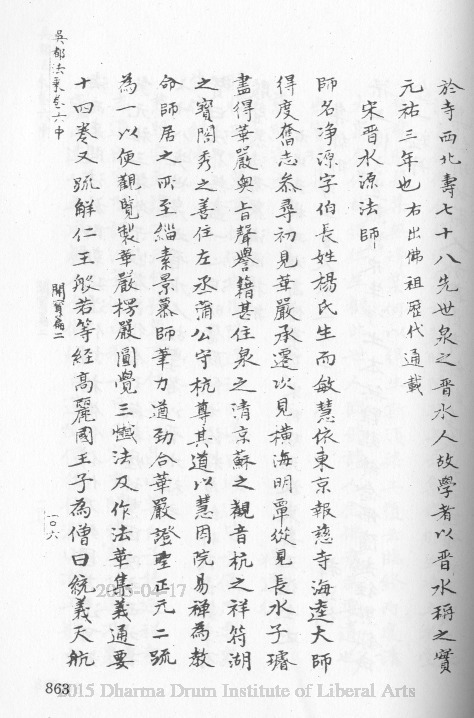 於寺西北壽七十八先世泉之晋水人故學者以晋水稱之實
元祐三年也右出佛祖歷代通載
宋晋水源法師
師名淨源字伯長姓楊氏生而敏慧依東京報慈寺海達大師
得度奮志參尋初見華嚴承遷次見橫海明覃從見長水子璿
盡得華嚴奧旨聲譽籍甚住泉之清京蘇之觀音杭之祥符湖
之寶閣秀之善住左丞蒲公守杭尊其道以慧因院易禪為教
命師居之所至緇素景慕師筆力遒勁合華嚴證聖正元二疏
為一以便觀覽製華嚴楞嚴圓覺三懺法及作法華集義通要
十四卷又疏解仁王般若等經高麗國王子為僧曰統義天航
吳都法乘卷六中
開實扁二
一〇六
863
2015-04-17
2015 Dharma Drum Institute of Liberal Arts